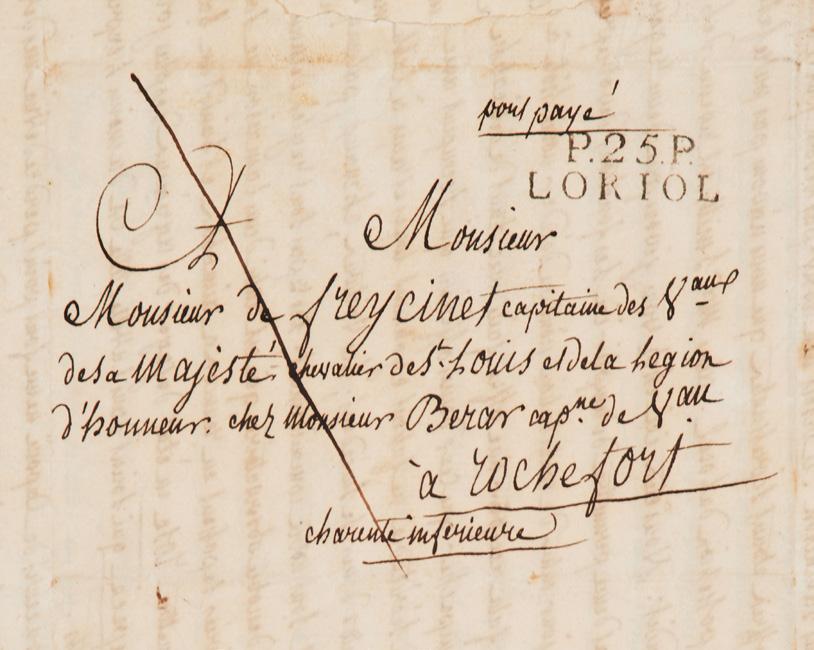 port payé
P.25.P.
LORIOL
A
Monsieur
Monsieur de freycinet capitaine des Vaux
de sa Majesté. chevalier de St. Louis et de la Legion
d'honneur. chez Monsieur Berar capne. de Vau
à rochefort
charente inferieure